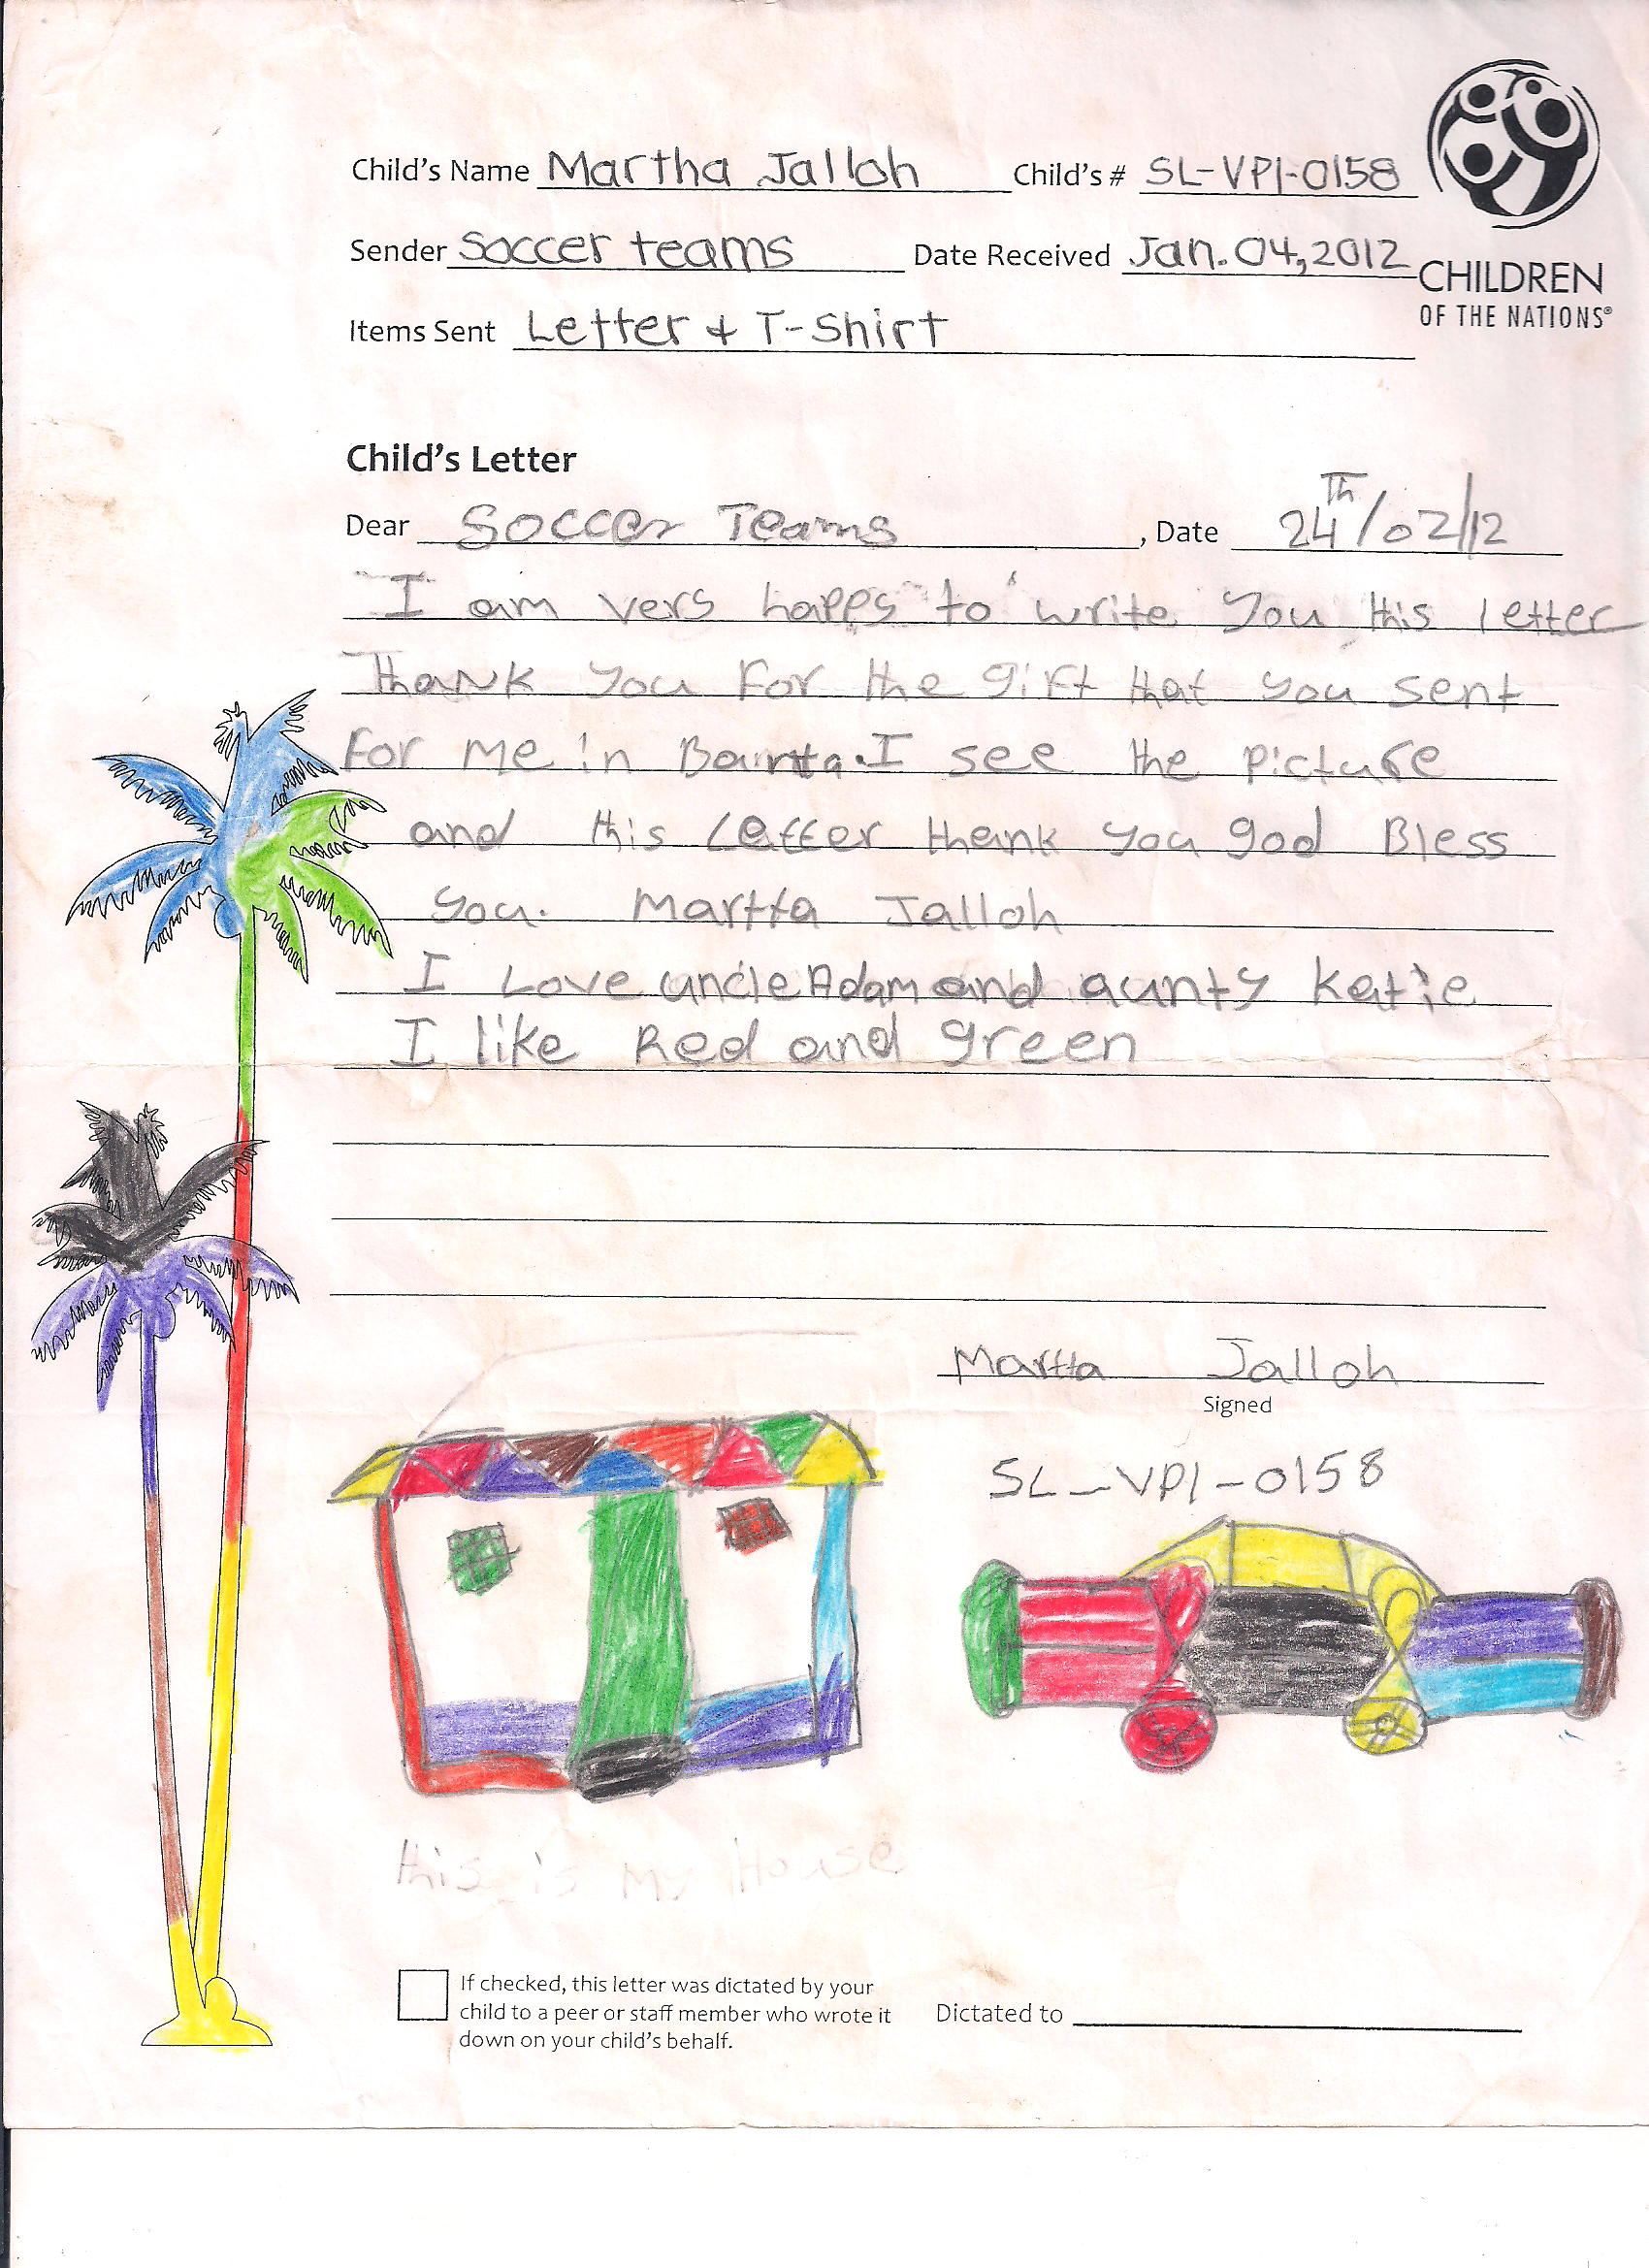 Child's Name Martha Jalloh Child's # SL-VPI-0158
Sender Soccer teams Date Received Jan. 04, 2012
CHILDREN
OF THE NATIONS®
Items Sent Letter + T-Shirt
Child's Letter
Dear Soccer Teams, Date 24Th/02/12
I am vers happs to write you this letter
Thank you For the gift that you sent
For me in I see the Picture
and this Letter thank you god Bless
you. Martta Jalloh
I Love uncle Adam and aunty Katie
I like Red and green
Martta Jalloh
Signed
SL-VPI-0158
this is my House
If checked, this letter was dictated by your
child to a peer or staff member who wrote it
down on your child's behalf.
Dictated to